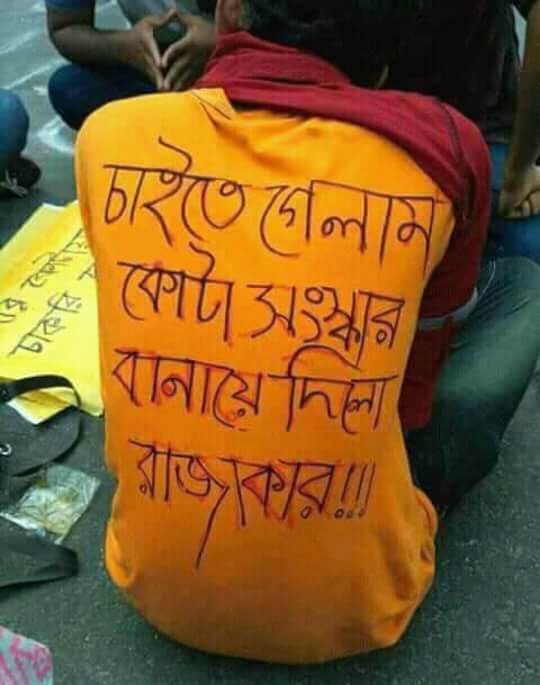 চাইতে গেলাম
কোটা সংস্কার
বানায়ে দিলো
রাজাকার!!!
চাকরি